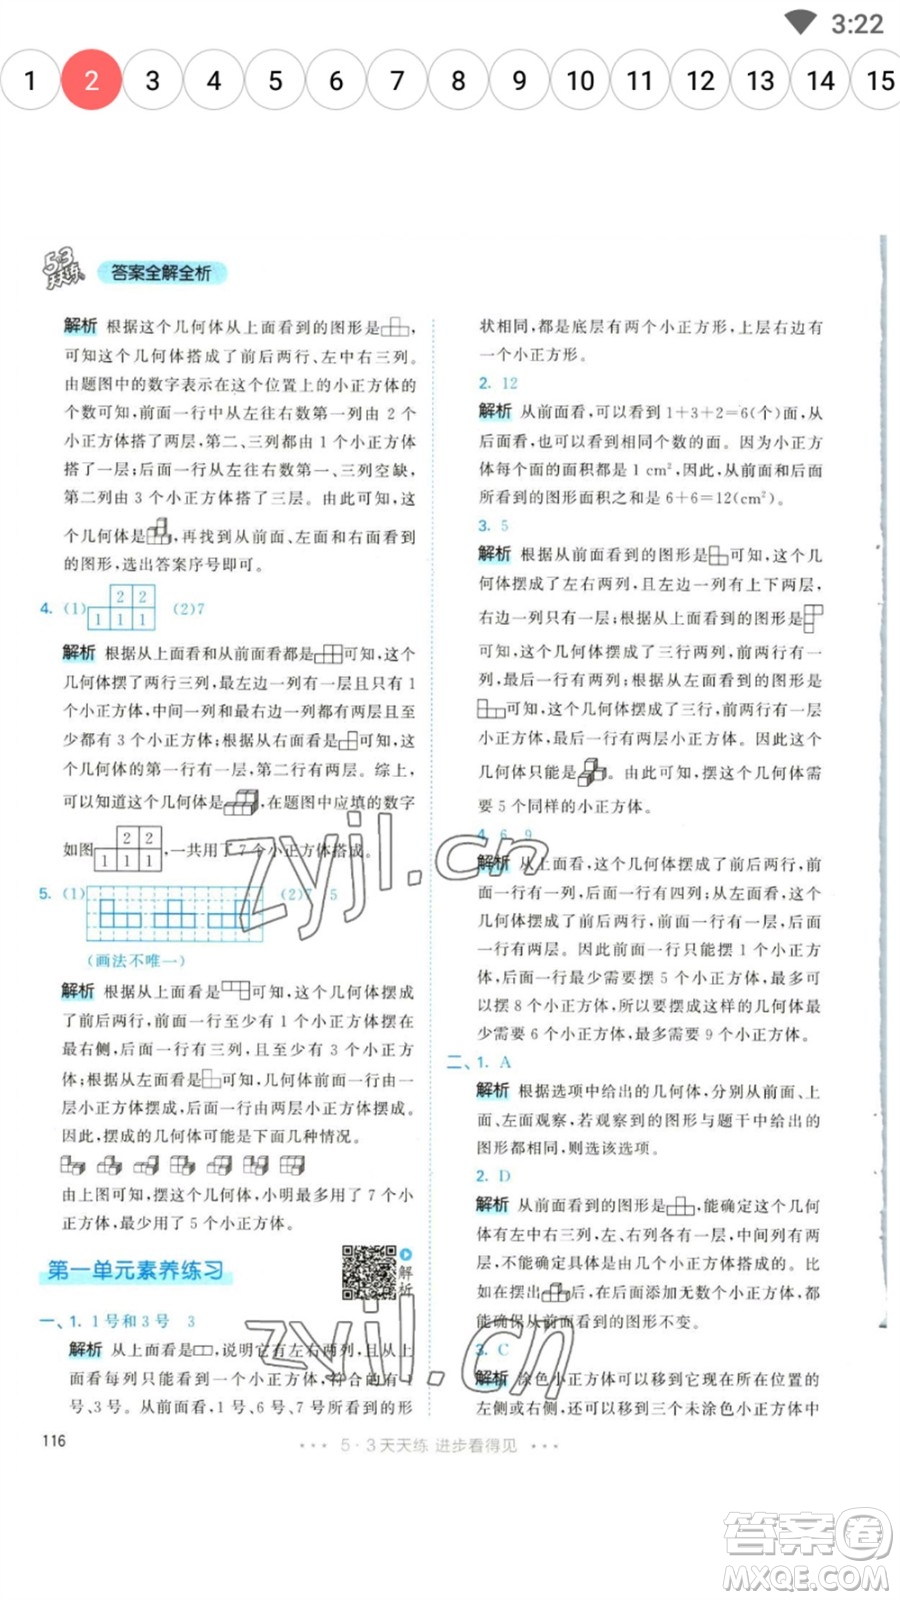 3:22
1 2 3 4 5 6 7 8 9 10 11 12 13 14 15
53
天天练
答案全解全析
解析 根据这个几何体从上面看到的图形是,
可知这个几何体搭成了前后两行、左中右三列。
由题图中的数字表示在这个位置上的小正方体的
个数可知,前面一行中从左往右数第一列由 2 个
小正方体搭了两层,第二、三列都由 1 个小正方体
搭了一层;后面一行从左往右数第一列空缺,
第二列由 3 个小正方体搭了三层。由此可知,这
个几何体是,再找到从前面、左面和右面看到
的图形,选出答案序号即可。
4. (1) 2 2 1 1 1 (2)7
解析 根据从上面看和从前面看都是可知,
这个几何体摆了两行三列,最左边一列只有 1 个
小正方体,中间一列和最右边一列都有两层且至
少都有 3 个小正方体;根据从右面看是可知,
这个几何体的第一行有一层,第二行有两层。综上,
可以知道这个几何体是,在题图中应填的数字
如图 2 2 1 1 1,一共用了 7 个小正方体搭成。
5. (1) (2)7 5
(画法不唯一)
解析 根据从上面看是可知,这个几何体摆成
了前后两行,前面一行至少有 1 个小正方体且在
最右侧,后面一行有三列,且至少有 3 个小正方
体;根据从左面看是可知,这个几何体后面一行
由两层小正方体摆成,前面一行由一层小正方体摆成。
因此,摆成的几何体可能是下面几种情况。
由上图可知,摆这个几何体,小明最多用了 7 个小正
方体,最少用了 5 个小正方体。
第一单元素养练习
解析
一、1. 1 号和 3 号 3
解析 从上面看是,说明它有左右两列,且从上
面看每列只能看到一个小正方体,符合的有 1
号、3 号。从前面看,1 号、6 号、7 号看到的形
状相同,都是底层有两个小正方形,上层右边有
一个小正方形。
2. 12
解析 从前面看,可以看到 1+3+2=6(个)面,从
后面看,也可以看到相同个数的面。因为小正方
体每个面的面积都是 1 cm²,因此,从前面和后面
所看到的图形面积之和是 6+6=12(cm²)。
3. 5
解析 根据从前面看到的图形是可知,这个几
何体摆成了左右两列,且左边一列有一层或两层,
右边一列只有一层;根据从上面看到的图形是
可知,这个几何体摆成了三行两列,前两行有一
列,最后一行有两列;根据从左面看到的图形是
可知,这个几何体摆成了三行,前两行有一层
小正方体,最后一行有两层小正方体。因此这个
几何体只能是。由此可知,摆这个几何体需
要 5 个同样的小正方体。
4. 6 9
解析 从上面看,这个几何体摆成了前后两行,前
面一行有一列,后面一行有四列;从左面看,这个
几何体摆成了前后两行,前面一行有一层,后面
一行有两层。因此前面一行只能摆 1 个小正方
体,后面一行最少需要摆 5 个小正方体,最多可
以摆 8 个小正方体,所以要摆成这样的几何体最
少需要 6 个小正方体,最多需要 9 个小正方体。
二、1. A
解析 根据选项中给出的几何体,分别从前面、上
面、左面观察,若观察到的图形与题干中给出的
图形都相同,则选该选项。
2. D
解析 从前面看到的图形是,能确定这个几何
体有左中右三列,且左、右列各有一层,中间列有
两层,但不能确定有几行,所以有无数种摆法。
如在摆出后,在后面添加无数个小正方体,
只要能确保从前面看到的图形不变。
3. C
解析 涂色小正方体可以移到它现在所在位置的
左侧或右侧,还可以移到三个未涂色小正方体中
116
5·3 天天练 进步看得见
zyjl.cn
zyjl.cn
答案卷
MXQE.COM